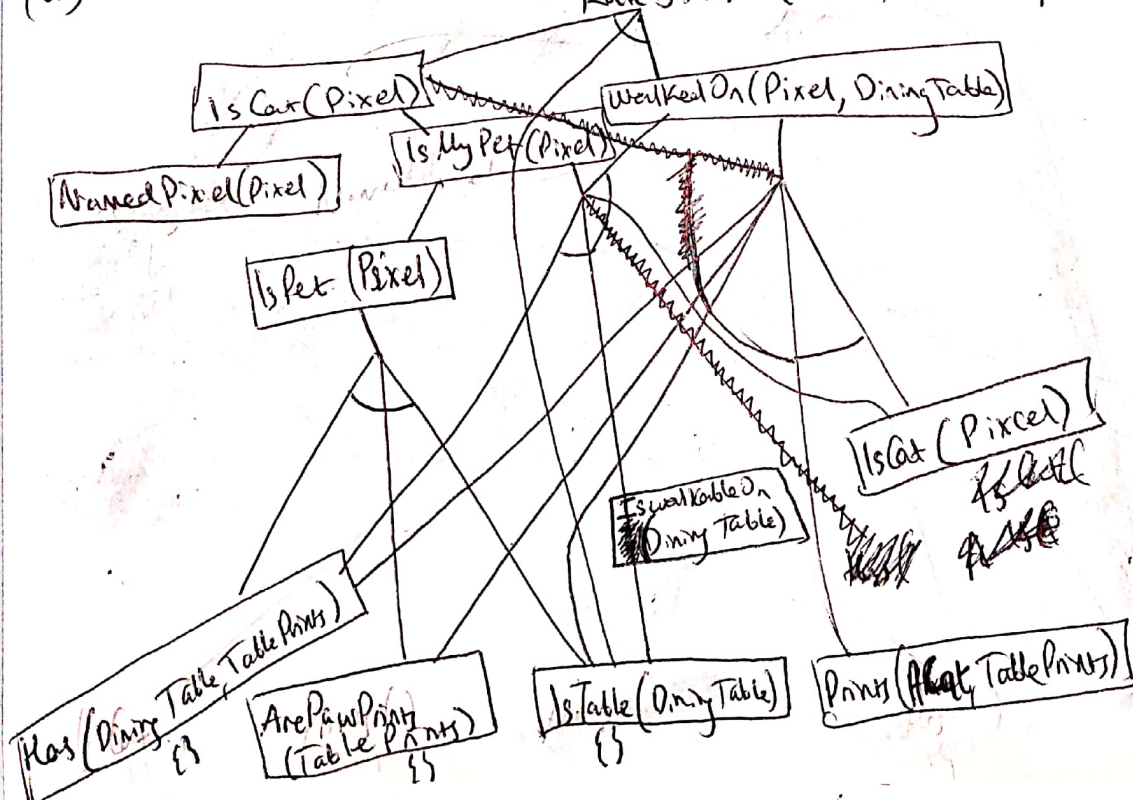 IsCat(Pixel)
WalkedOn(Pixel, DiningTable)
IsMyPet(Pixel)
NamedPixel(Pixel)
IsPet (Pixel)
IsCat (Pixcel)
IswalkableOn
(Dining Table)
Has (Dining Table, TablePrints)
{}
ArePawPrints
(Table Prints)
{}
IsTable (DiningTable)
{}
Prints( TablePrints)